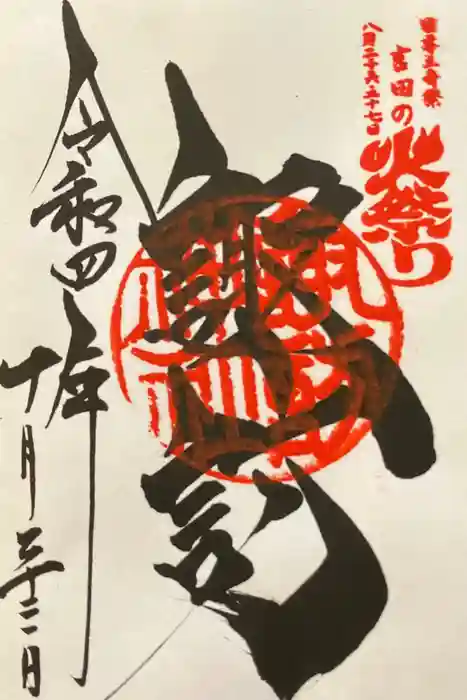 日本三奇祭
八月二十六二十七日
吉田の
火祭り
諏訪
令和四年
十月二十二日